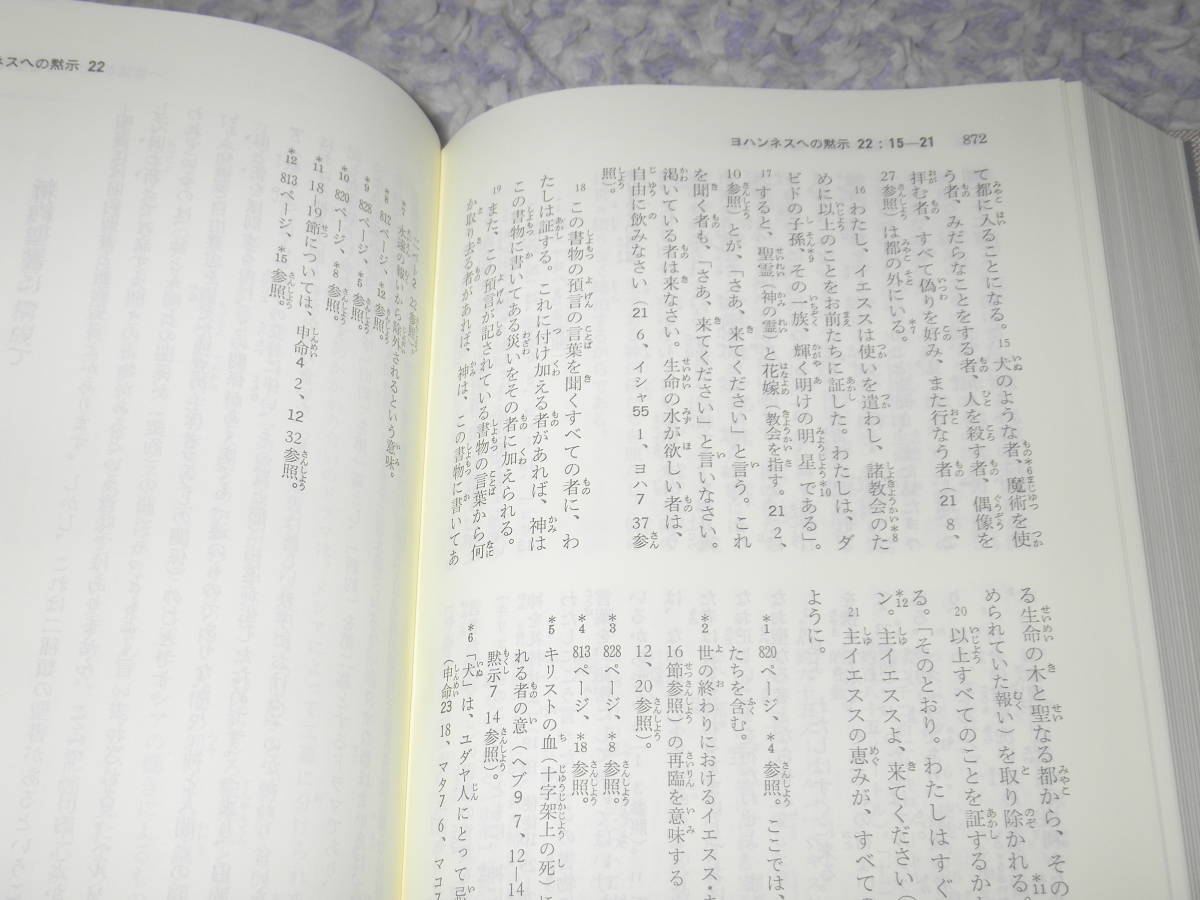 ヨハンネスへの黙示 22：15—21　872
て都に入ることになる。15 犬のような者、*6魔術を使
う者、みだらなことをする者、人を殺す者、偶像を
拝む者、すべて偽りを好み、また行なう者（21 8、
27参照）は都の外にいる。*7
16 わたし、イエススは使いを遣わし、諸教会*8のた
めに以上のことをお前たちに証した。わたしは、ダ
ビドの子孫、*9その一族、輝く明けの明星*10である」。
17 すると、聖霊（神の霊）と花嫁（教会を指す。21 2、
10参照）とが、「さあ、来てください」と言う。これ
を聞く者も、「さあ、来てください」と言いなさい。
渇いている者は来なさい。生命の水が欲しい者は、
自由に飲みなさい（21 6、イシャ55 1、ヨハ7 37参
照）。
18 この書物の預言の言葉を聞くすべての者に、わ
たしは証する。これに付け加える者があれば、神は
この書物に書いてある災いをその者に加えられる。
19 また、この預言が記されている書物の言葉から何
か取り去る者があれば、神は、この書物に書いてあ
る生命の木と聖なる都から、その
められていた報い）を取り除かれる。*11
20 以上すべてのことを証するか
る。「そのとおり。わたしはすぐ
ン。*12主イエススよ、来てください（
21 主イエススの恵みが、すべて
ように。
*1 820ページ、*4参照。ここでは、
たちを含む。
*2 世の終わりにおけるイエスス・
16節参照）の再臨を意味する
12、20参照）。
*3 828ページ、*8参照。
*4 813ページ、*18参照。
*5 キリストの血（十字架上の死）に
れる者の意（ヘブ9 7、12—14
黙示7 14参照）。
*6 「犬」は、ユダヤ人にとって忌
（申命23 18、マタ7 6、マコ7
ネスへの黙示 22
*7 永遠の報いから除外されるという意味。
*8 812ページ、*12参照。
*9 828ページ、*5参照。
*10 820ページ、*8参照。
*11 18—19節については、申命4 2、12 32参照。
*12 813ページ、*15参照。